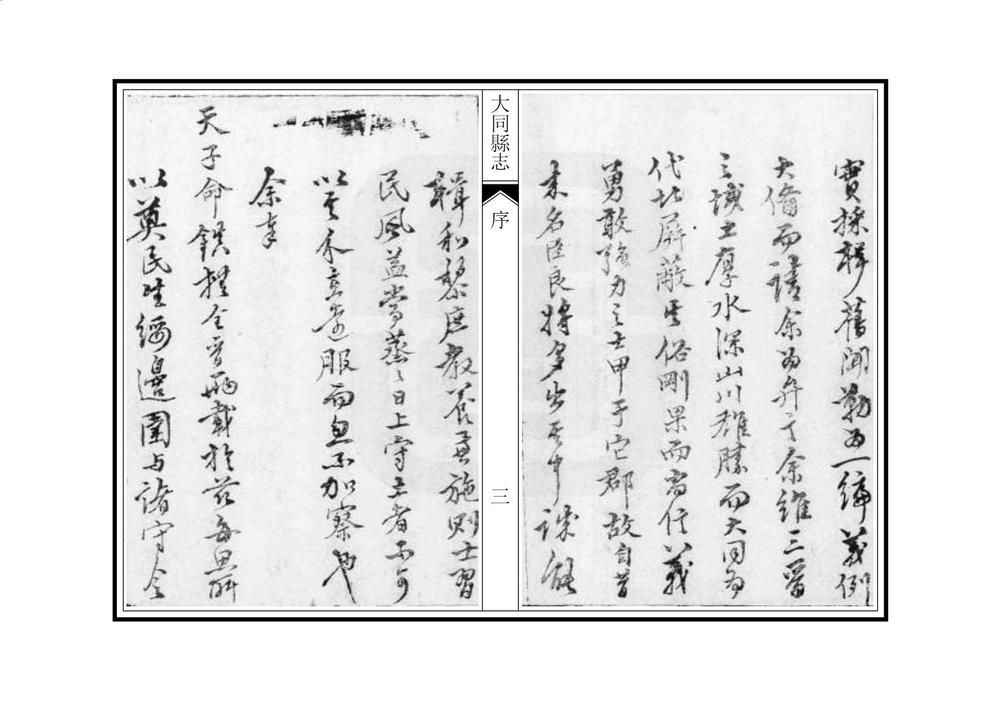 實採輯舊聞勒為一編義例
大備而請余為弁言余維三晉
之域土厚水深山川雄勝而大同為
代北屏蔽其俗剛果而尚信義
勇敢強力之士甲于它郡故自昔
來名臣良將多出其中誠能
大同縣志
序
三
輯和黎庶教養兼施則士習
民風益當蒸〻日上守土者不可
以其介在邊服而忽不加察也
余奉
天子命鎮撫全晉兩載於茲每思所
以奠民生綏邊圉與諸守令